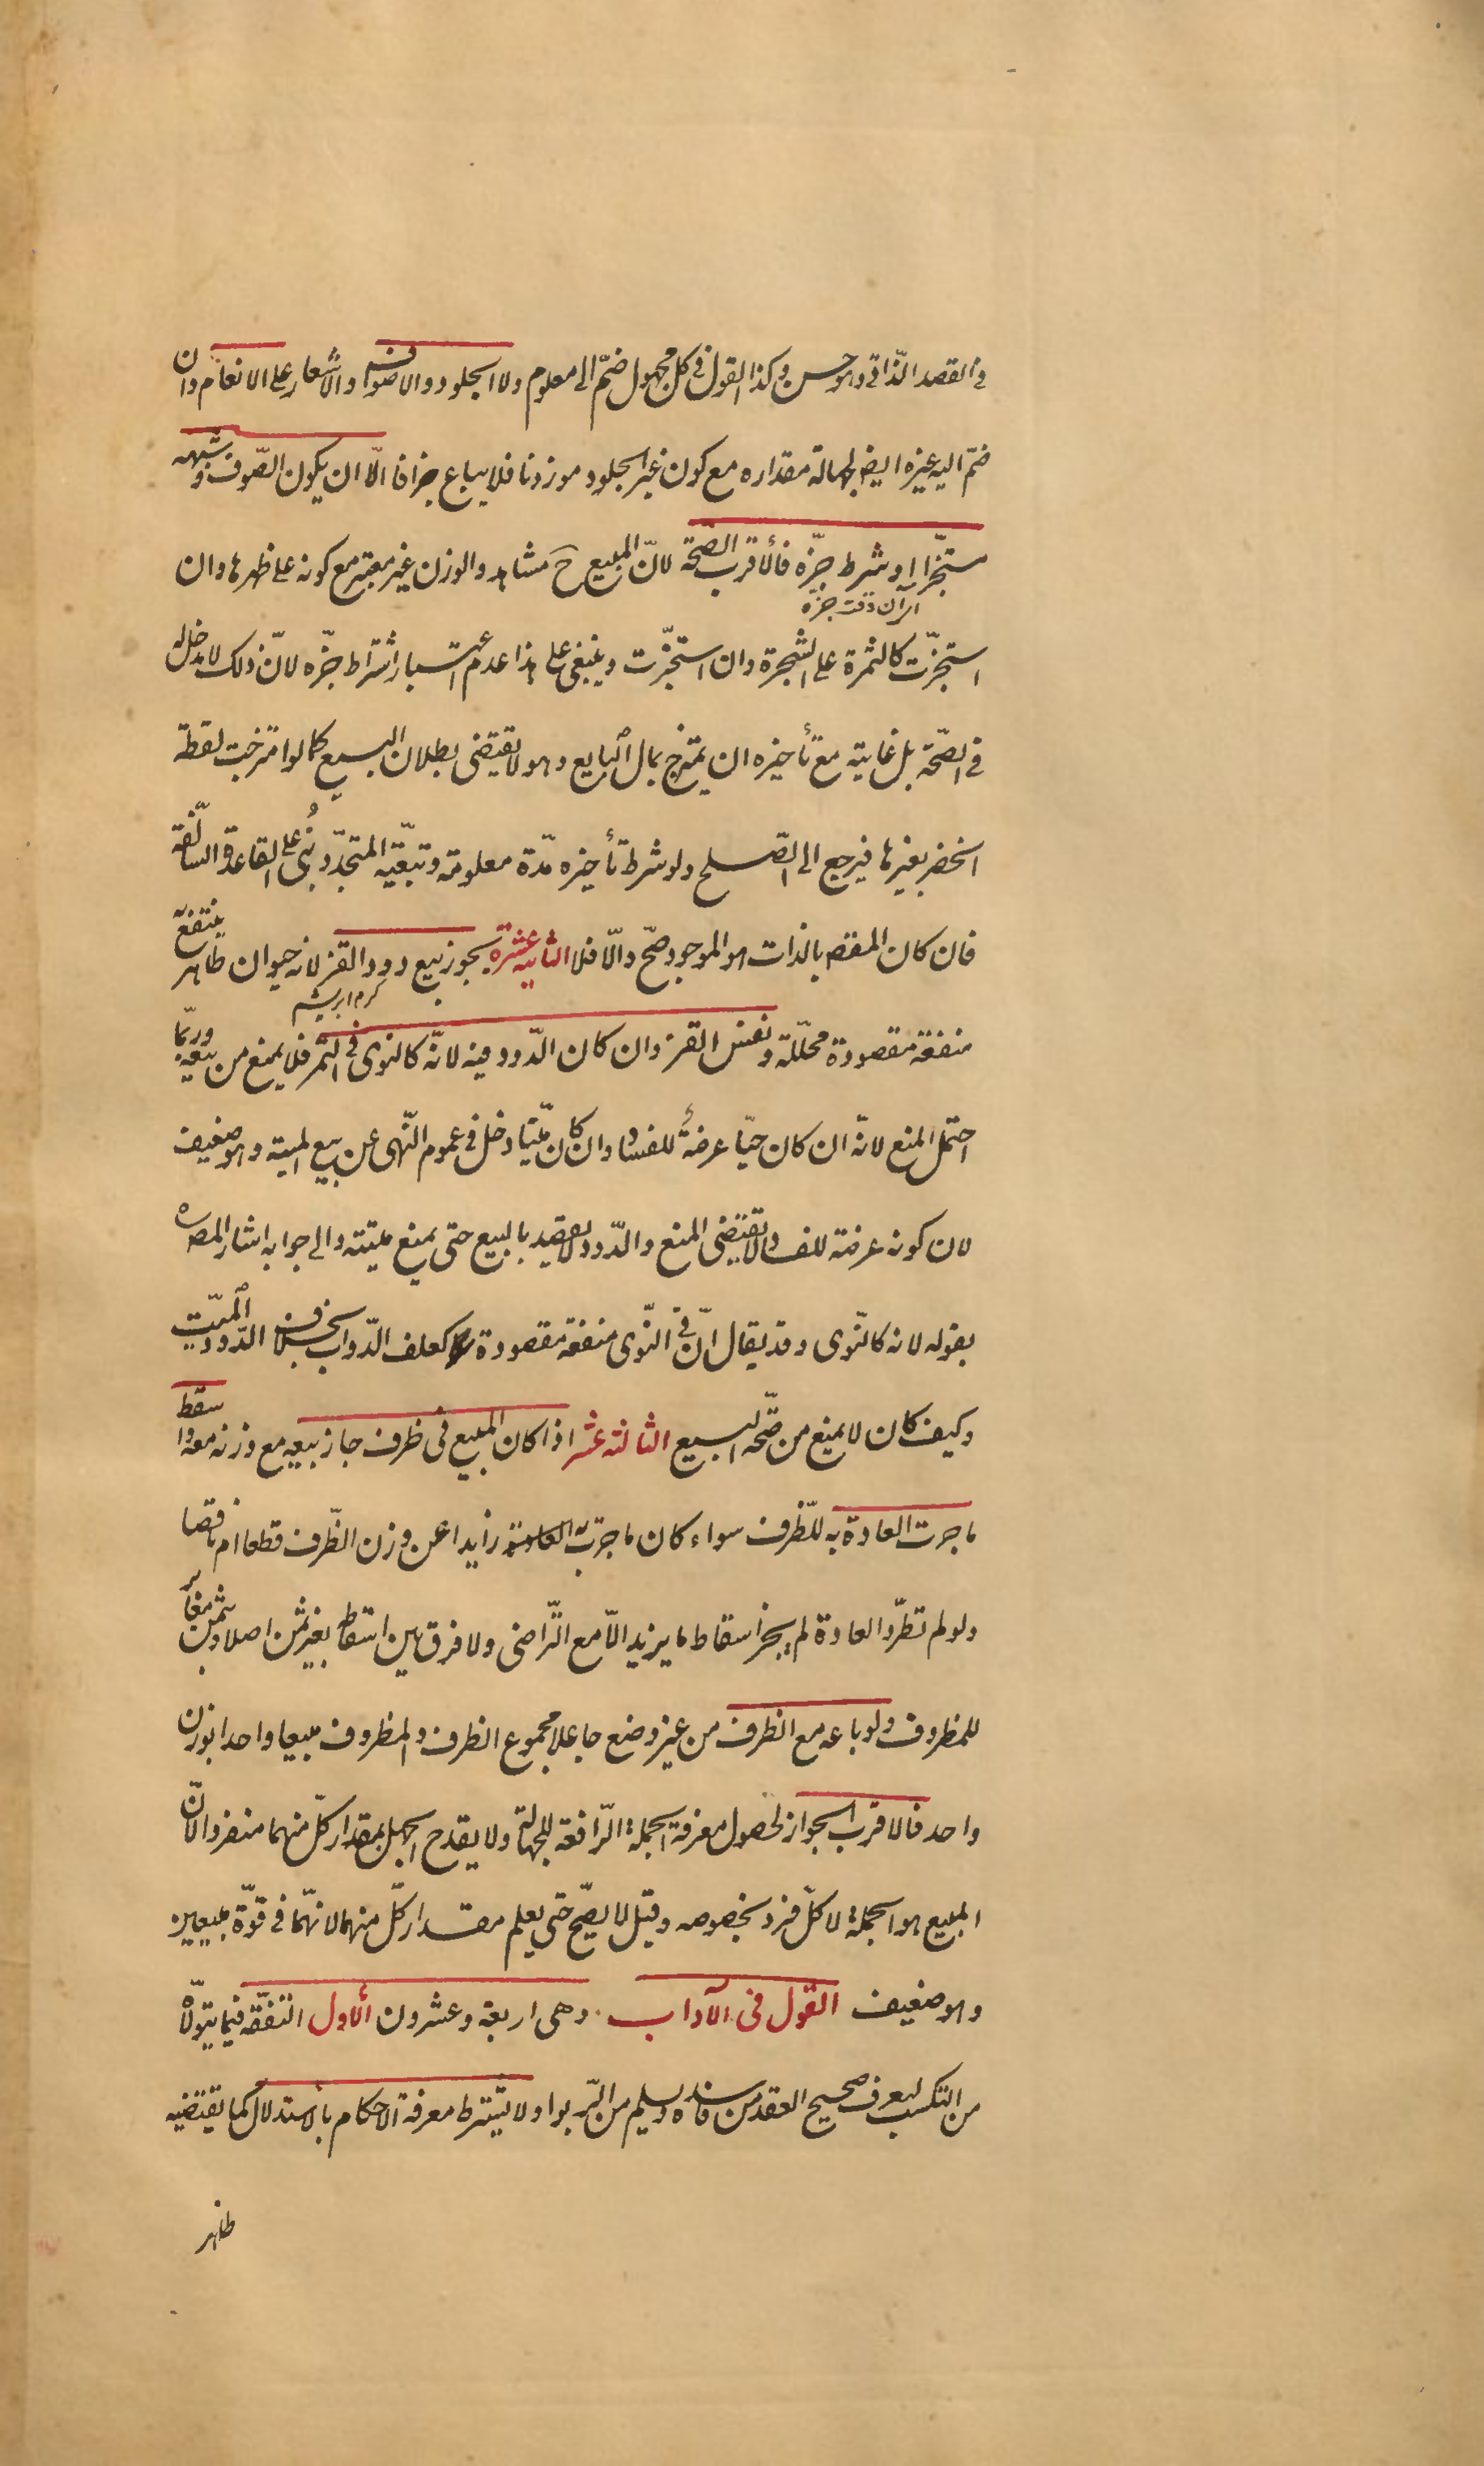 فى القصد الذّاتى وهو حسن وكذا القول فى كل مجهول ضمّ الى معلوم ولا الجلود والاصواف والاشعار على الانعام وان
ضمّ اليه غيره ايضا لجهالة مقداره مع كون غير الجلود موزونا فلا يباع جزافا الّا ان يكون الصّوف وشبهه
مستجزّا او شرط جزّه فالأقرب الصحّة لانّ المبيع ح مشاهد والوزن غير معتبر مع كونه على ظهرها وان
استجزّت كالثمرة على الشجرة وان استجزّت وينبغى على هذا عدم اعتبار اشتراط جزّه لانّ ذلك لا مدخل له
فى الصّحّة بل غايته مع تأخيره ان يمتزج بمال البايع وهو لا يقتضى بطلان البيع كما لو امتزجت لقطة
الخضر بغيرها فيرجع الى الصّلح ولو شرط تأخيره مدّة معلومة وتبعيّة المتجدّد بُنى على القاعدة السّالفة
فان كان المقصود بالذات هو الموجود صحّ والّا فلا الثانيه عشرة يجوز بيع دود القز لانه حيوان طاهر ينتفع به
كرم ابريشم
منفعة مقصودة محلّلة ونفس القز وان كان الدّود فيه لانّه كالنوى فى التمر فلا يمنع من بيعه وربّما
احتمل المنع لانّه ان كان حيّا عرضةٌ للفساد وان كان ميّتا دخل فى عموم النّهى عن بيع الميتة وهو ضعيف
لان كونه عرضة للفساد لا يقتضى المنع والدّود لا يقصد بالبيع حتى يمنع ميتته والى جوابه اشار المصره
بقوله لانه كالنّوى وقد يقال انّ فى النّوى منفعة مقصودة كعلف الدّواب بخلاف الدّود الميّت
وكيف كان لا يمنع من صّحة البيع الثالثه عشر اذا كان المبيع فى ظرف جاز بيعه مع وزنه معه واسقط
ما جرت العادة به للظّرف سواء كان ما جرت به العادة زايدا عن وزن الظّرف قطعا ام ناقصا
ولو لم تطّرد العادة لم يجز اسقاط ما يزيد الّا مع التّراضى ولا فرق بين اسقاطه بغير ثمن اصلا وبثمن مغاير
للمظروف ولو باعه مع الظرف من غير وضع جاعلا مجموع الظرف والمظروف مبيعا واحدا بوزن
واحد فالاقرب الجواز لحصول معرفة الجملة الرّافعة للجهالة ولا يقدح الجهل بمقدار كلّ منهما منفردا لانّ
المبيع هو الجملة لا كلّ فرد بخصوصه وقيل لا يصّح حتى يعلم مقدار كلّ منهما لانهّما فى قوّة مبيعين
وهو ضعيف القول فى الآداب وهى اربعة وعشرون الأول التفقّه فيما يتولّاه
من التكسب ليعرف صحيح العقد من فاسده ويسلم من الرّبوا ولا يشترط معرفة الاحكام بالاستدلال كما يقتضيه
ظاهر